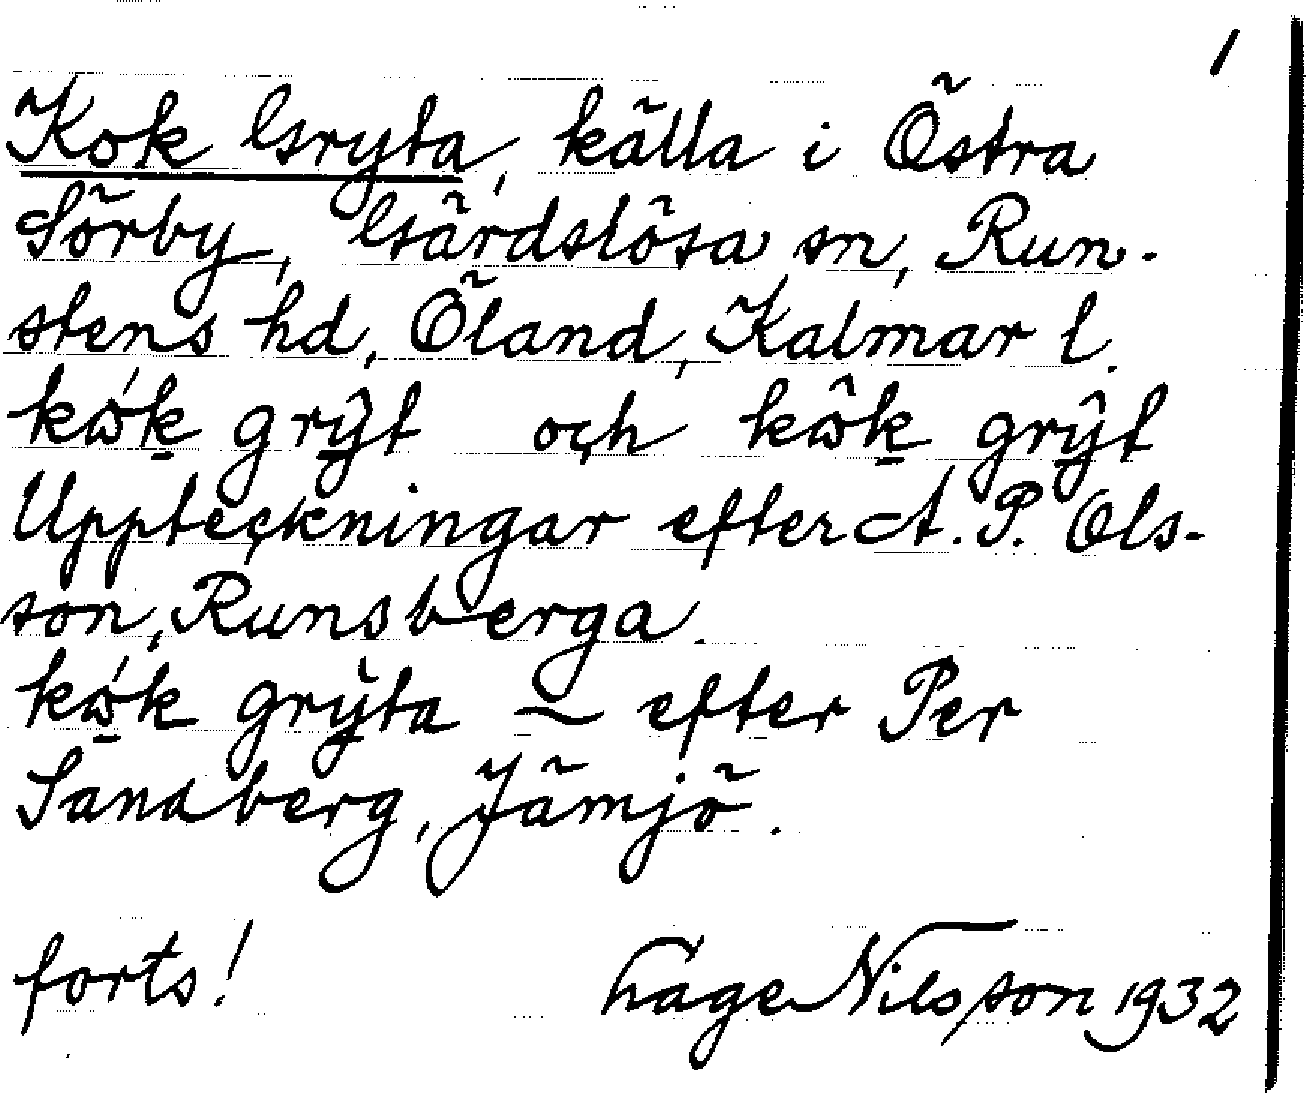 1
Kok Gryta, källa i Östra
Sörby, Gärdslösa sn, Run-
stens hd, Öland, Kalmar l.
och
Uppteckningar efter A. P. Ols-
son, Runsberga.
efter Per
Sandberg, Jämjö.
forts! Hage Nilsson 1932